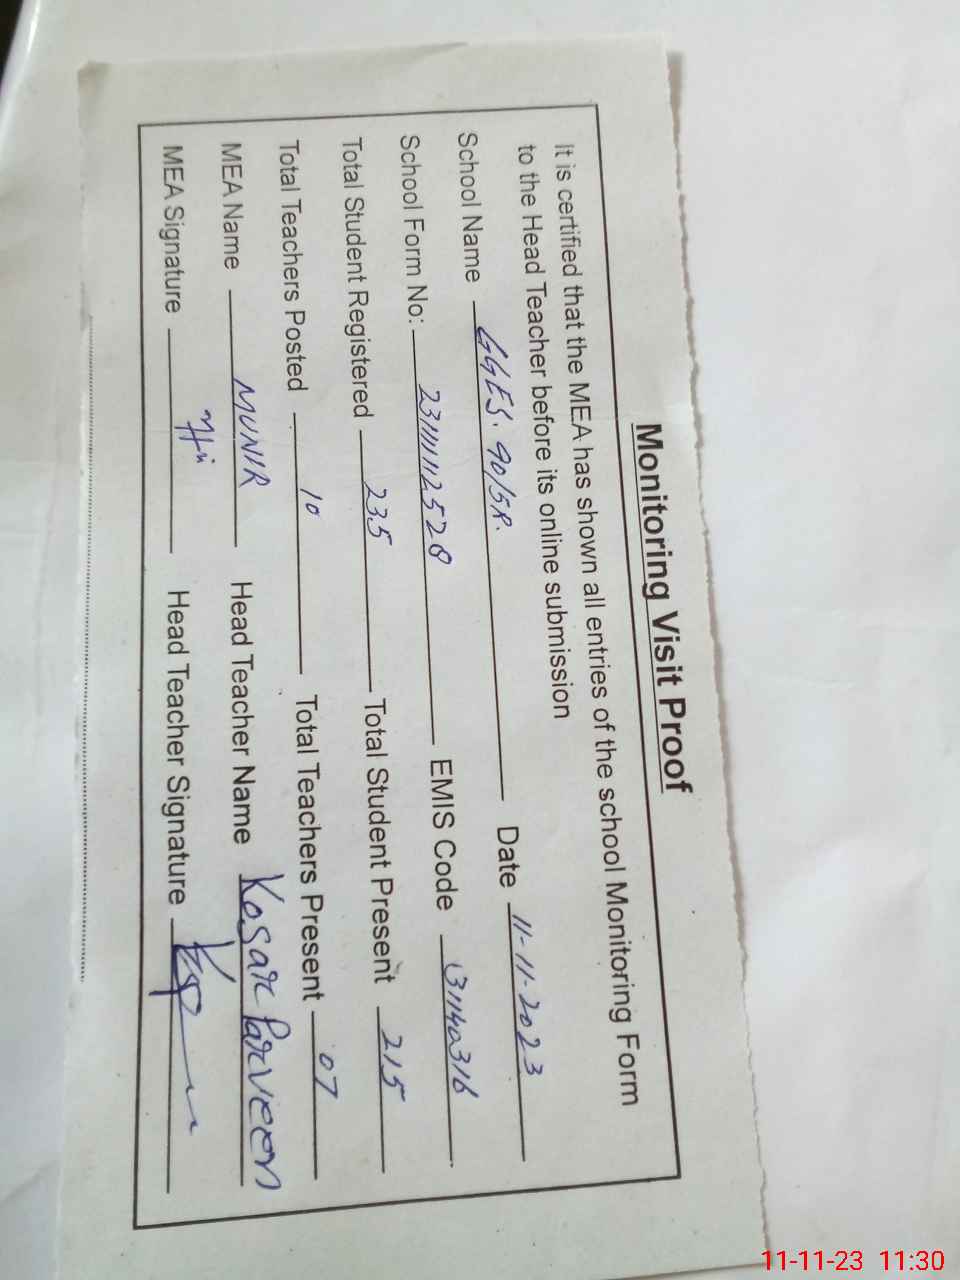 Monitoring Visit Proof
It is certified that the MEA has shown all entries of the school Monitoring Form
to the Head Teacher before its online submission
School Name GGES. 90/5R. Date 11-11-2023
School Form No: 23111112528 EMIS Code 31140316
Total Student Registered 235 Total Student Present 215
Total Teachers Posted 10 Total Teachers Present 07
MEA Name MUNIR Head Teacher Name Kosar Parveen
MEA Signature Head Teacher Signature
11-11-23 11:30